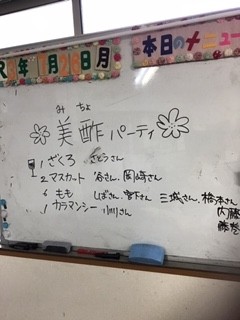 年 1月28日月
本日のメニュー
み ちょ
美酢パーティ
1 ざくろ さとうさん
2 マスカット 谷さん、岡崎さん
6 もも しばさん、宮下さん 三城さん、橋本さん
内藤
1 カラマンシー 小川さん